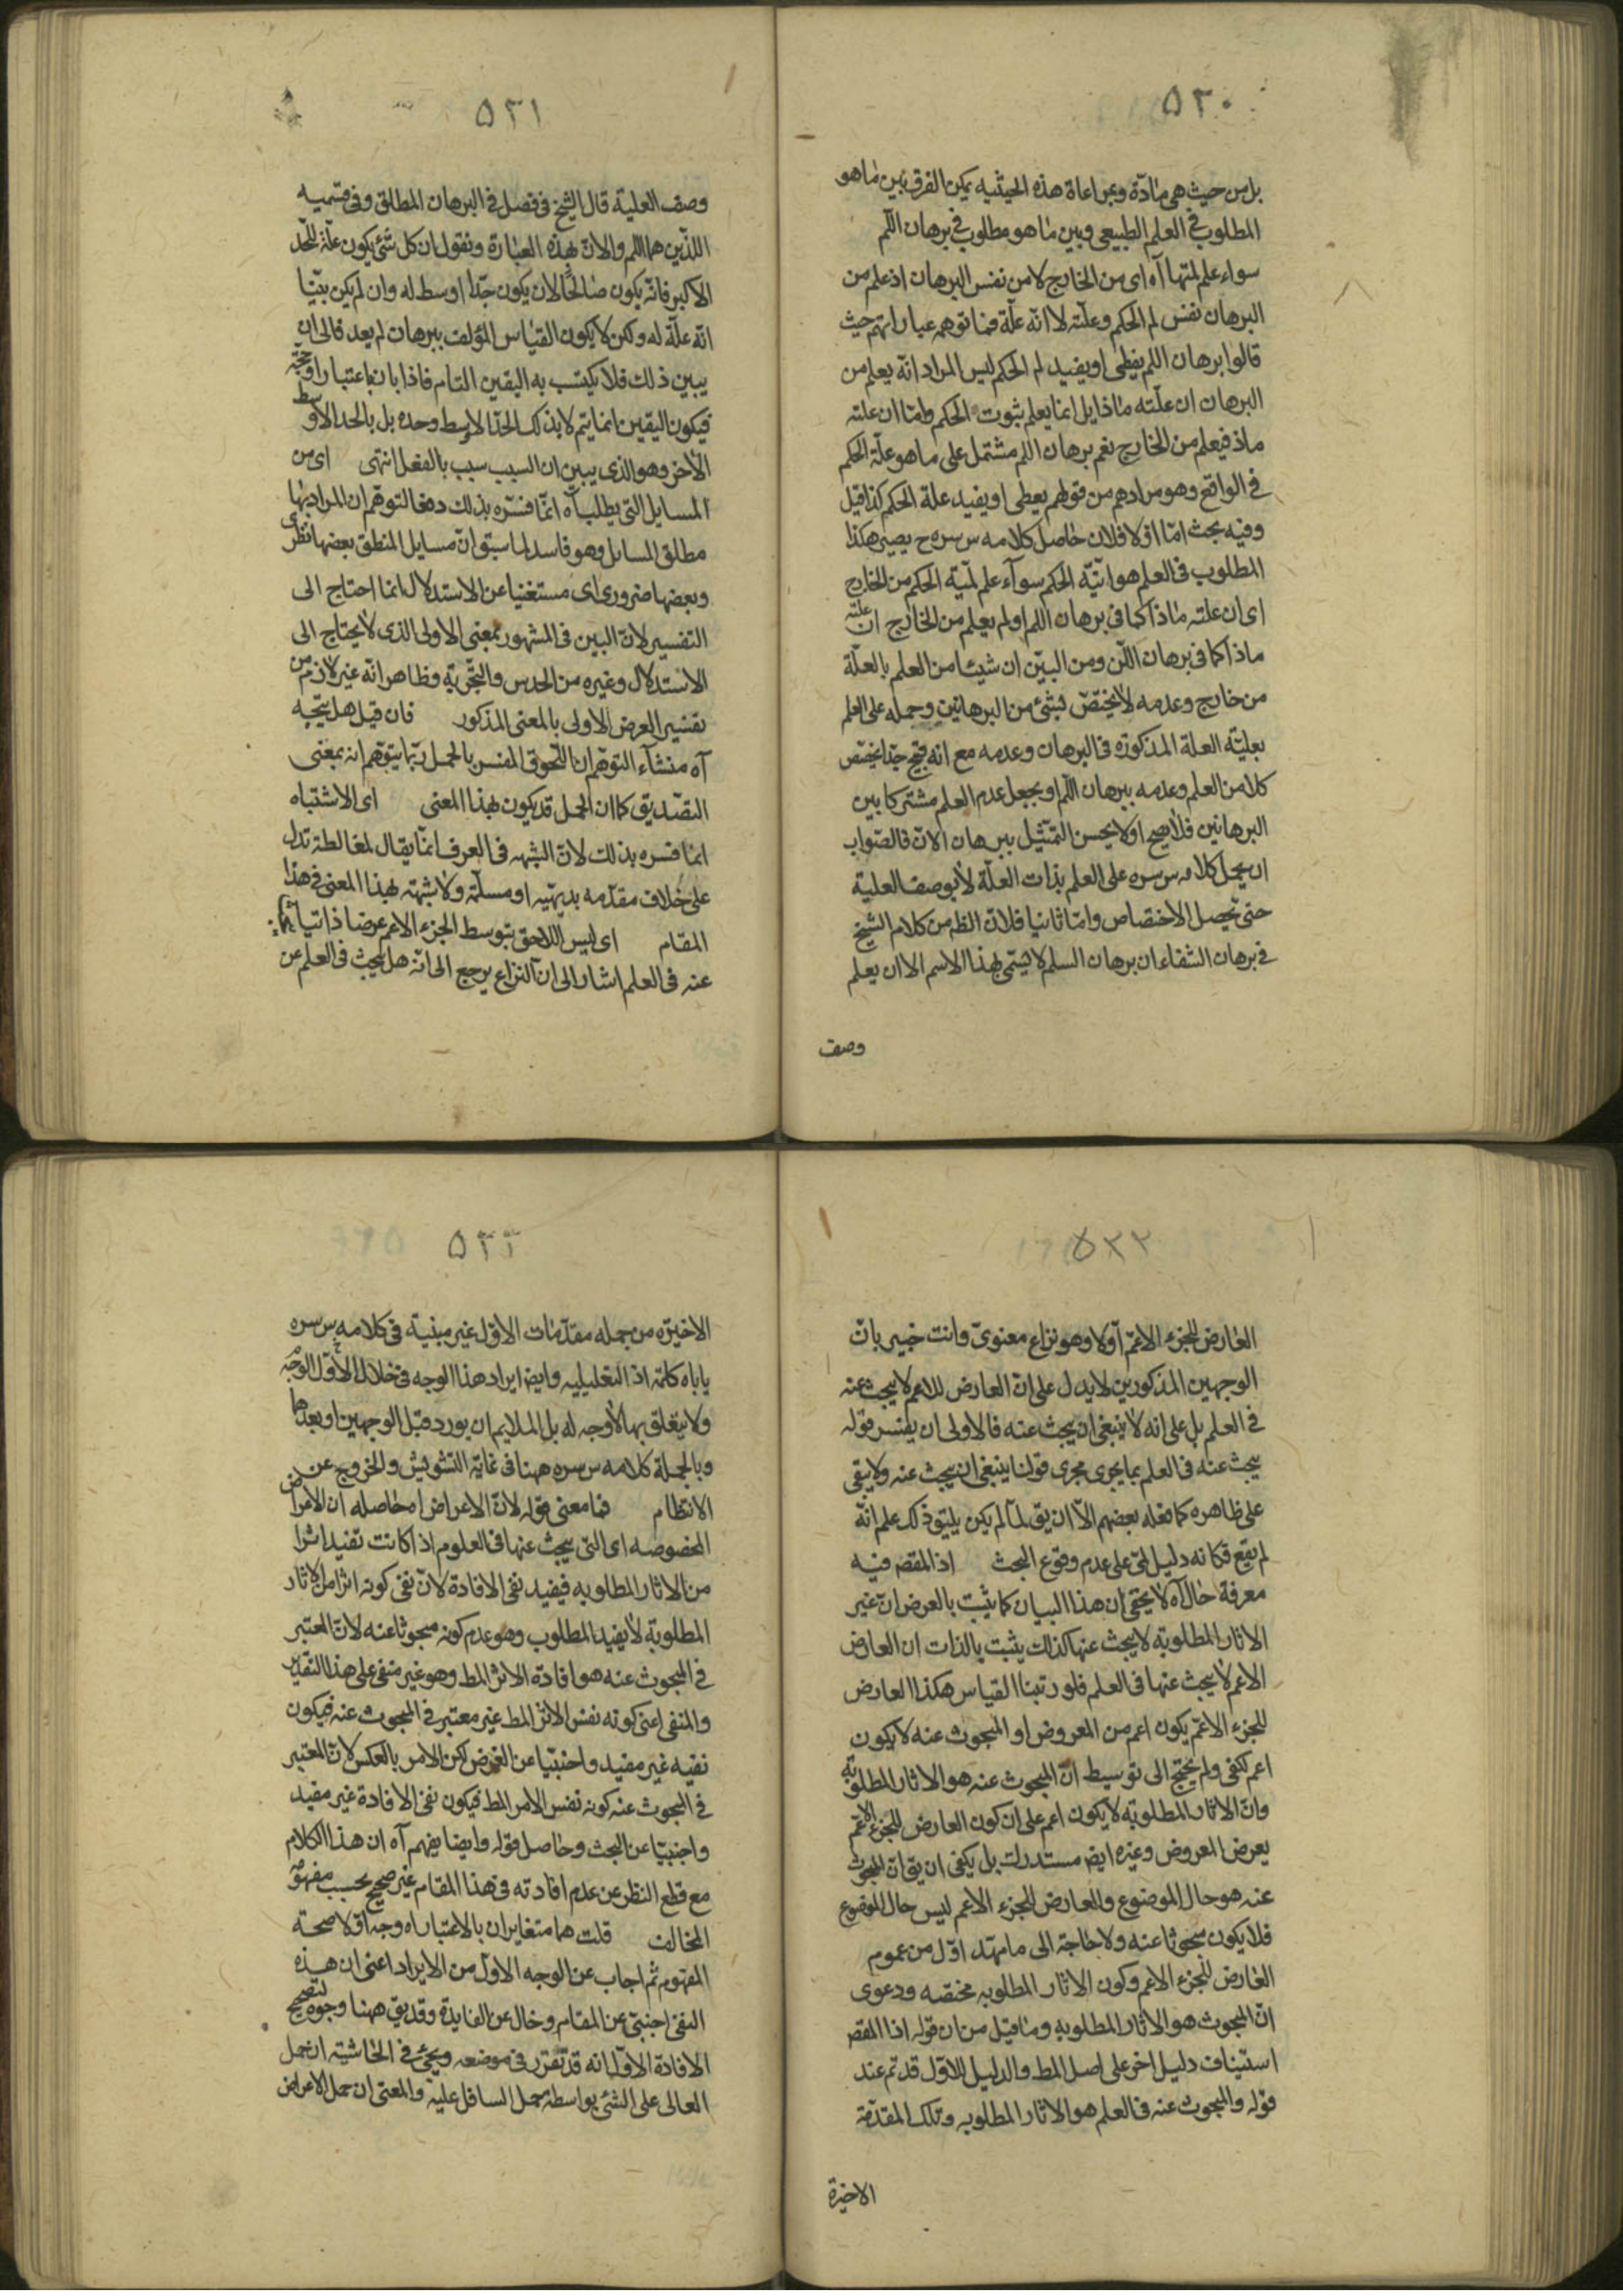 ٥٣٠
بل من حيث هى مادّة وبمراعاة هذه الحيثيه يمكن الفرق بين ما هو
المطلوب فى العلم الطبيعى وبين ما هو مطلوب فى برهان اللّم
سواء علم لمّتها آه اى من الخارج لا من نفس البرهان اذ علم من
البرهان نفس لم الحكم وعلّته لا انّه علّة فما توهمه عباراتهم حيث
قالوا برهان اللم يعطى او يفيد لم الحكم ليس المراد انّه يعلم من
البرهان ان علّته ماذا بل انما يعلم ثبوت الحكم وامّا ان علته
ماذ فيعلم من الخارج نعم برهان اللم مشتمل على ما هو علّة الحكم
فى الواقع وهو مرادهم من قولهم يعطى او يفيد علة الحكم كذا قيل
وفيه بحث امّا اوّلا فلان حاصل كلامه س سره ح يصير هكذا
المطلوب فى العلم هو انيّه الحكم سوآء علم لميّه الحكم من الخارج
اى ان علته ماذا كما فى برهان اللم او لم يعلم من الخارج ان علته
ماذا كما فى برهان اللّن ومن البيّن ان شيئا من العلم بالعلّة
من خارج وعدمه لا يختصّ بشئ من البرهانين وحمله على العلم
بعليّه العلة المذكورة فى البرهان وعدمه مع انه قبيح جدّا يختص
كلا من العلم وعدمه ببرهان اللّم او يجعل عدم العلم مشتركا بين
البرهانين فلا يصح او لا يحسن التمثيل ببرهان الانّ فالصّواب
ان يحمل كلامه س سره على العلم بذات العلّة لا بوصف العلية
حتى يحصل الاختصاص وامّا ثانيا فلانّ الظم من كلام الشيخ
فى برهان الشفاء ان برهان السلم لا يسمّى بهذا الاسم الا ان يعلم
وصف
٥٣١
وصف العلية قال الشيخ فى فصل فى البرهان المطلق وفى قسميه
اللذين هما اللم والانّ بهذه العبارة ونقول ان كل شئ يكون علّة للحدّ
الاكبر فانّه يكون صالحًا لان يكون حدّا اوسط له وان لم يكن بيّنا
انّه علّة له ولكن لا يكون القياس المؤلف ببرهان لم يعد فالى ان
يبين ذلك فلا يكتسب به اليقين التام فاذا بان باعتبار او حجّة
فيكون اليقين انما يتم لا بذلك الحدّ الاوسط وحده بل بالحد الاوسط
الأخر وهو الذى يبين ان السبب سبب بالفعل انتهى اى من
المسايل التى يطلب آه انّما فسّره بذلك دفعا لتوهّم ان المراد بها
مطلق المسايل وهو فاسد لما سبق انّ مسايل المنطق بعضها نظرى
وبعضها ضرورى اى مستغنيا عن الاستدلال انما احتاج الى
التفسير لانّ البين فى المشهور بمعنى الاولى الذى لا يحتاج الى
الاستدلال وغيره من الحدس والتجربة وظاهر انّه غير لازم من
تفسير العرض الاولى بالمعنى المذكور فان قيل هل يتّجه
آه منشاء التوهّم ان اللّحوق المفسر بالحمل ربّما يتوهّم انه بمعنى
التصّديق كما ان الحمل قد يكون بهذا المعنى اى الاشتباه
انما فسره بذلك لانّ الشبهه فى العرف انّما يقال لمغالطة تدل
على خلاف مقدّمه بديهيّه او مسلّمة ولا شبهته بهذا المعنى فى هذا
المقام اى ليس اللاحق بتوسط الجزء الاعم عرضا ذاتيا
عنه فى العلم اشار الى ان النزاع يرجع الى انّه هل يبحث فى العلم عن
٥٣٢
العارض للجزء الاعمّ آو لا وهو نزاع معنوىّ وانت خبير بانّ
الوجهين المذكورين لا يدل على انّ العارض للاعم لا يبحث عنه
فى العلم بل على انه لا ينبغى ان يبحث عنه فالاولى ان يفسر قوله
يبحث عنه فى العلم بما يجرى مجرى قولنا ينبغى ان يبحث عنه ولا يبقى
على ظاهره كما فعله بعضهم الّا ان يق لمّا لم يكن يليق ذلك علم انّه
لم يقع فكانه دليل لمّى على عدم وقوع البحث اذ المقصم فيه
معرفة حال آه لا يخفى ان هذا البيان كما يثبت بالعرض انّ غير
الاثار المطلوبة لا يبحث عنها كذلك يثبت بالذات ان العارض
الاعم لا يبحث عنها فى العلم فلو رتبنا القياس هكذا العارض
للجزء الاعمّ يكون اعم من المعروض او المبحوث عنه لا يكون
اعم لكفى ولم يحتج الى توسيط انّ المبحوث عنه هو الاثار المطلوبة
وانّ الاثار المطلوبة لا يكون اعم على ان كون العارض للجزء الاعمّ
يعرض المعروض وغيره ايضم مستدرك بل يكفى ان يق انّ المبحوث
عنه هو حال الموضوع والعارض للجزء الاعم ليس حال الموضوع
فلا يكون مبحوثا عنه ولا حاجة الى ما مهّد اوّل من عموم
العارض للجزء الاعم وكون الاثار المطلوبه مختصه ودعوى
انّ المبحوث هو الاثار المطلوبه وما قيل من ان قوله اذا المقصم
استيناف دليل اخر على اصل المط والدليل الاوّل قد تم عند
قوله والمبحوث عنه فى العلم هو الاثار المطلوبه وتلك المقدّمة
الاخيرة
٥٣٣
الاخيره من جمله مقدّمات الاوّل غير مبنية فى كلامه س سره
ياباه كلمة اذ التعليليه وايضم ايراد هذا الوجه فى خلال الاوّل
ولا يتعلق بها لا وجه له بل الملايم ان يورد قبل الوجهين او بعدهما
وبالجملة كلامه س سره ههنا فى غاية التشويش والخروج عن
الانتظام فما معنى قوله لانّ الاعراض اه حاصله ان الاعراض
المخصوصه اى التى يبحث عنها فى العلوم اذا كانت تفيد اثرا
من الاثار المطلوبه فيفيد نفى الافادة لانّ نفى كونه اثرا من الاثار
المطلوبة لا يفيد المطلوب وهو عدم كونه مبحوثا عنه لانّ المعتبر
فى المبحوث عنه هو افادة الاثر المط وهو غير منفى على هذا التقدير
والمنفى اعنى كونه نفس الاثر المط غير معتبر فى المبحوث عنه فيكون
نفيه غير مفيد واجنبيّا عن الغرض لكن الامر بالعكس لانّ المعتبر
فى المبحوث عنه كونه نفس الامر المط فيكون نفى الافادة غير مفيد
واجنبيّا عن البحث وحاصل قوله وايضا يفهم آه ان هذا الكلام
مع قطع النظر عن عدم افادته فى هذا المقام غير صحيح بحسب مفهومه
المخالف قلت هما متغايران بالاعتبار اه وجه اوّلا صحة
المفهوم ثم اجاب عن الوجه الاوّل من الايراد اعنى ان هذه
النفى اجنبىّ عن المقام وخال عن الفايدة وقد يق ههنا وجوه لتصحيح
الافادة الاوّل انه قد تقرّر فى موضعه ويجئ فى الحاشيته ان حمل
العالى على الشئ بواسطة حمل السافل عليه والمعنى ان حمل الاعراض